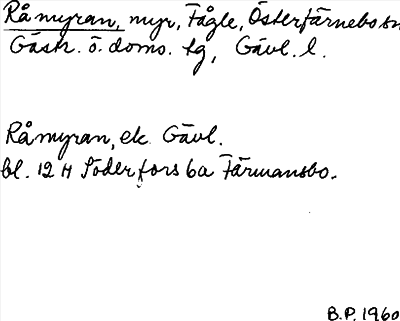 Råmyran, myr, Fågle, Österfärnebo sn
Gästr. ö. doms. tg, Gävl. l.
Råmyran, ek Gävl.
bl. 12 H Söderfors 6a Färmansbo.
B.P. 1960